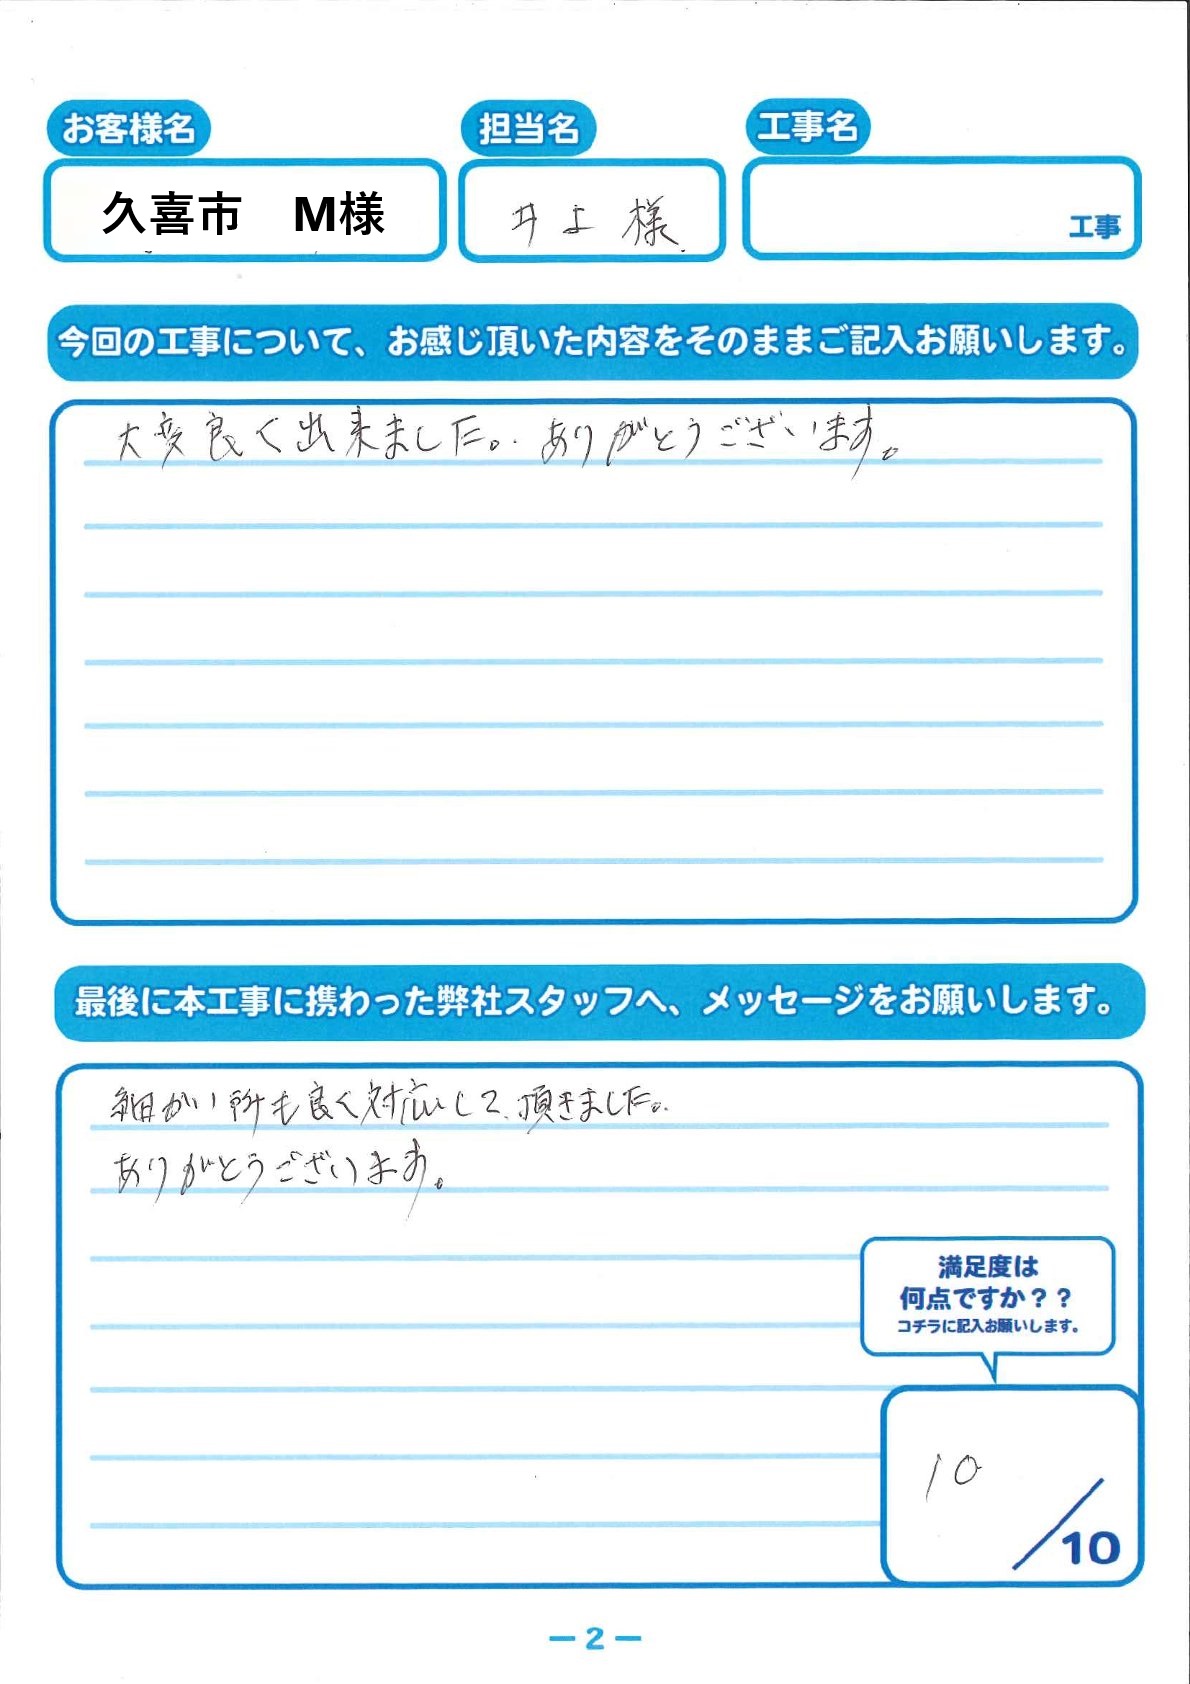 お客様名
担当名
工事名
久喜市　M様
井上 様
工事
今回の工事について、お感じ頂いた内容をそのままご記入お願いします。
大変良く出来ました。ありがとうございます。
最後に本工事に携わった弊社スタッフへ、メッセージをお願いします。
細かい所も良く対応して頂きました。
ありがとうございます。
満足度は
何点ですか？？
コチラに記入お願いします。
10
／10
－2－